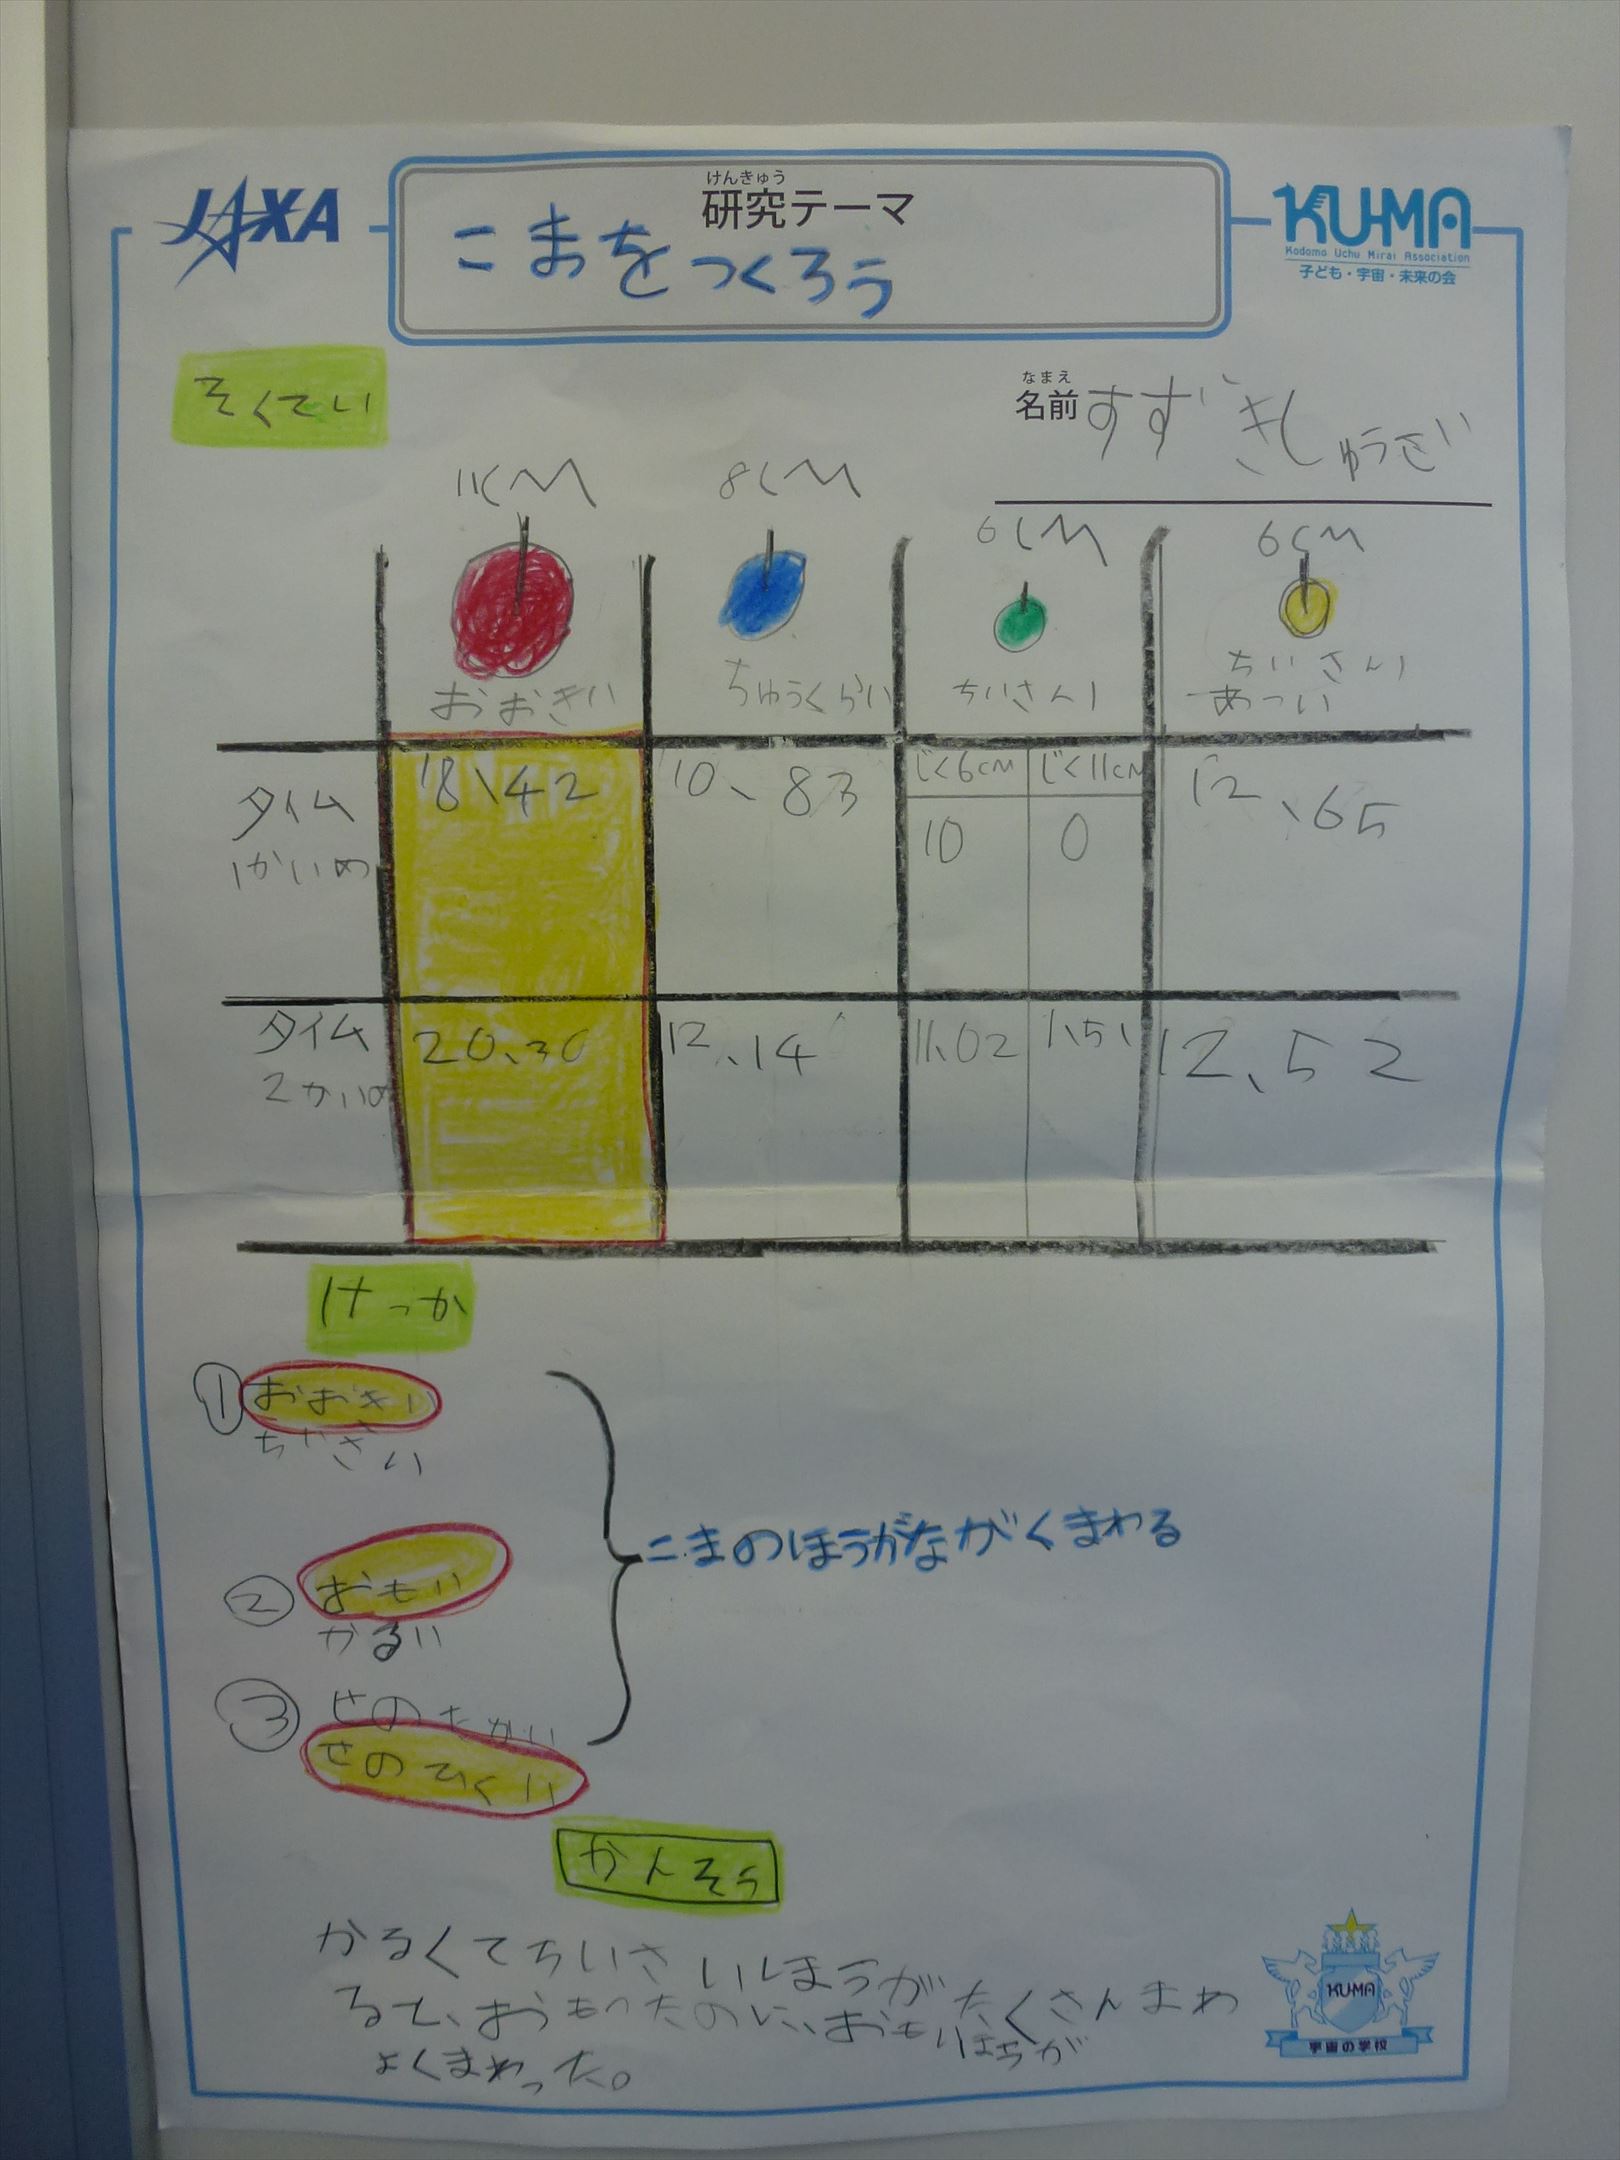 JAXA
けんきゅう
研究テーマ
こまをつくろう
KU-MA
Kodomo Uchu Mirai Association
子ども・宇宙・未来の会
そくてい
なまえ
名前 すずきしゅうさい
11CM 8CM 6CM 6CM
おおきい ちゅうくらい ちいさい ちいさい
あつい
タイム 18、42 10、83 じく6cm じく11cm 12、65
1かいめ 10 0
タイム 20、30 12、14 11、02 1、51 12、52
2かいめ
けっか
① おおきい
ちいさい
② おもい
かるい
こまのほうがながくまわる
③ せのたかい
せのひくい
かんそう
かるくてちいさいほうがたくさんまわ
ると、おもったのに、おもいほうが
よくまわった。
KU-MA
宇宙の学校